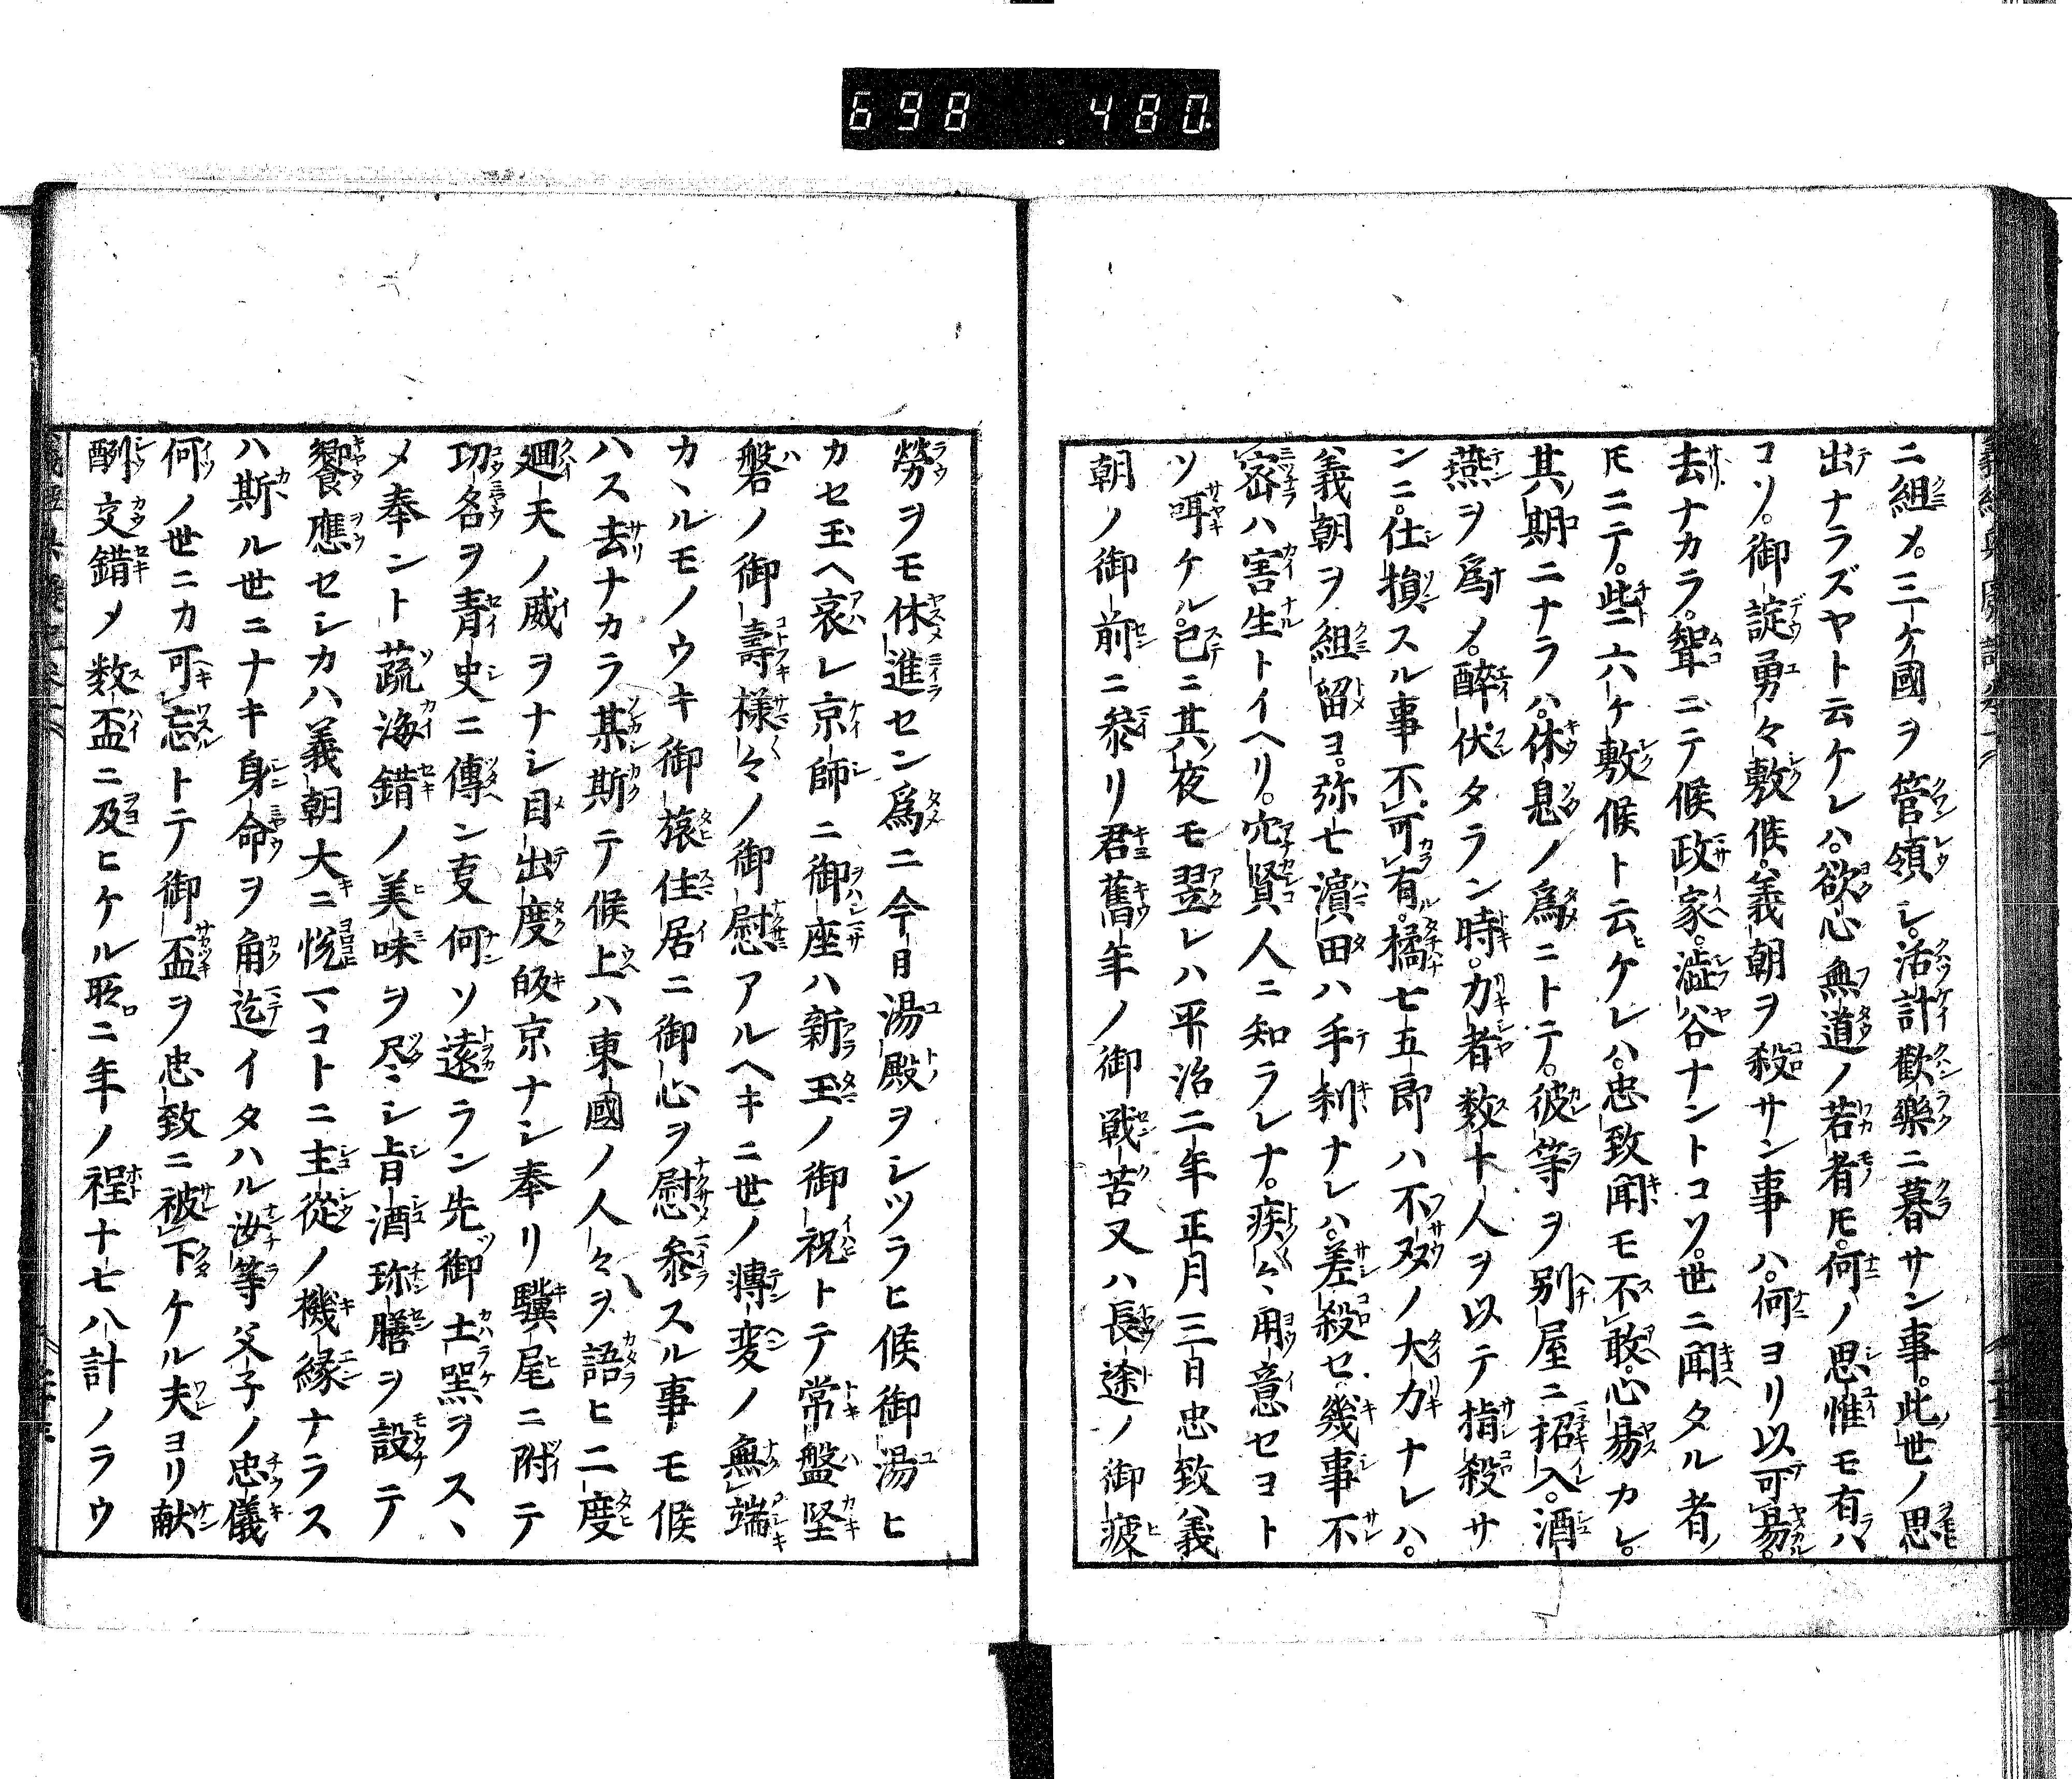 698 480.
ニ組メ。三ケ國ヲ管領シ。活計歓樂ニ暮サン事。此世ノ思
出ナラズヤト云ケレハ。欲心無道ノ若者𪜈。何ノ思惟モ有ハ
コソ。御諚勇々敷候。義朝ヲ殺サン事ハ。何ヨリ以可易。
去ナカラ。聟ニテ候政家。澁谷ナントコソ。世ニ聞タル者
𪜈ニテ。些六ケ敷候ト云ケレハ。忠致聞モ不敢。心易カレ。
其期ニナラハ。休息ノ爲ニトテ。彼等ヲ別屋ニ招入。酒
燕ヲ爲メ。醉伏タラン時。力者数十人ヲ以テ指殺サ
ンニ。仕損スル事不可有。橘七五郎ハ不双ノ大力ナレハ。
義朝ヲ組留ヨ。弥七濵田ハ手利ナレハ。差殺セ。幾事不
密ハ害生トイヘリ。穴賢人ニ知ラレナ。疾々用意セヨト
ソ咡ケル。已ニ其夜モ翌レハ平治二年正月三日忠致義
朝ノ御前ニ参リ君舊年ノ御戦苦又ハ長途ノ御疲
勞ヲモ休進セン爲ニ今日湯殿ヲシツラヒ候御湯ヒ
カセ玉ヘ哀レ京師ニ御座ハ新玉ノ御祝トテ常盤堅
磐ノ御壽様々ノ御慰アルヘキニ世ノ轉変ノ無端
カヽルモノウキ御旅住居ニ御心ヲ慰参スル事モ候
ハス去ナカラ某斯テ候上ハ東國ノ人々ヲ語ヒ二度
廻天ノ威ヲナシ目出度皈京ナシ奉リ驥尾ニ附テ
功名ヲ青史ニ傳ン叓何ソ遠ラン先御土器ヲスヽ
メ奉ントテ蔬海錯ノ美味ヲ尽シ旨酒珎膳ヲ設テ
饗應セシカハ義朝大ニ悦マコトニ主從ノ機縁ナラス
ハ斯ル世ニナキ身命ヲ角迄イタハル汝等父子ノ忠儀
何ノ世ニカ可忘トテ御盃ヲ忠致ニ被下ケル夫ヨリ献
酬交錯メ数盃ニ及ヒケル所ニ年ノ程十七八計ノラウ